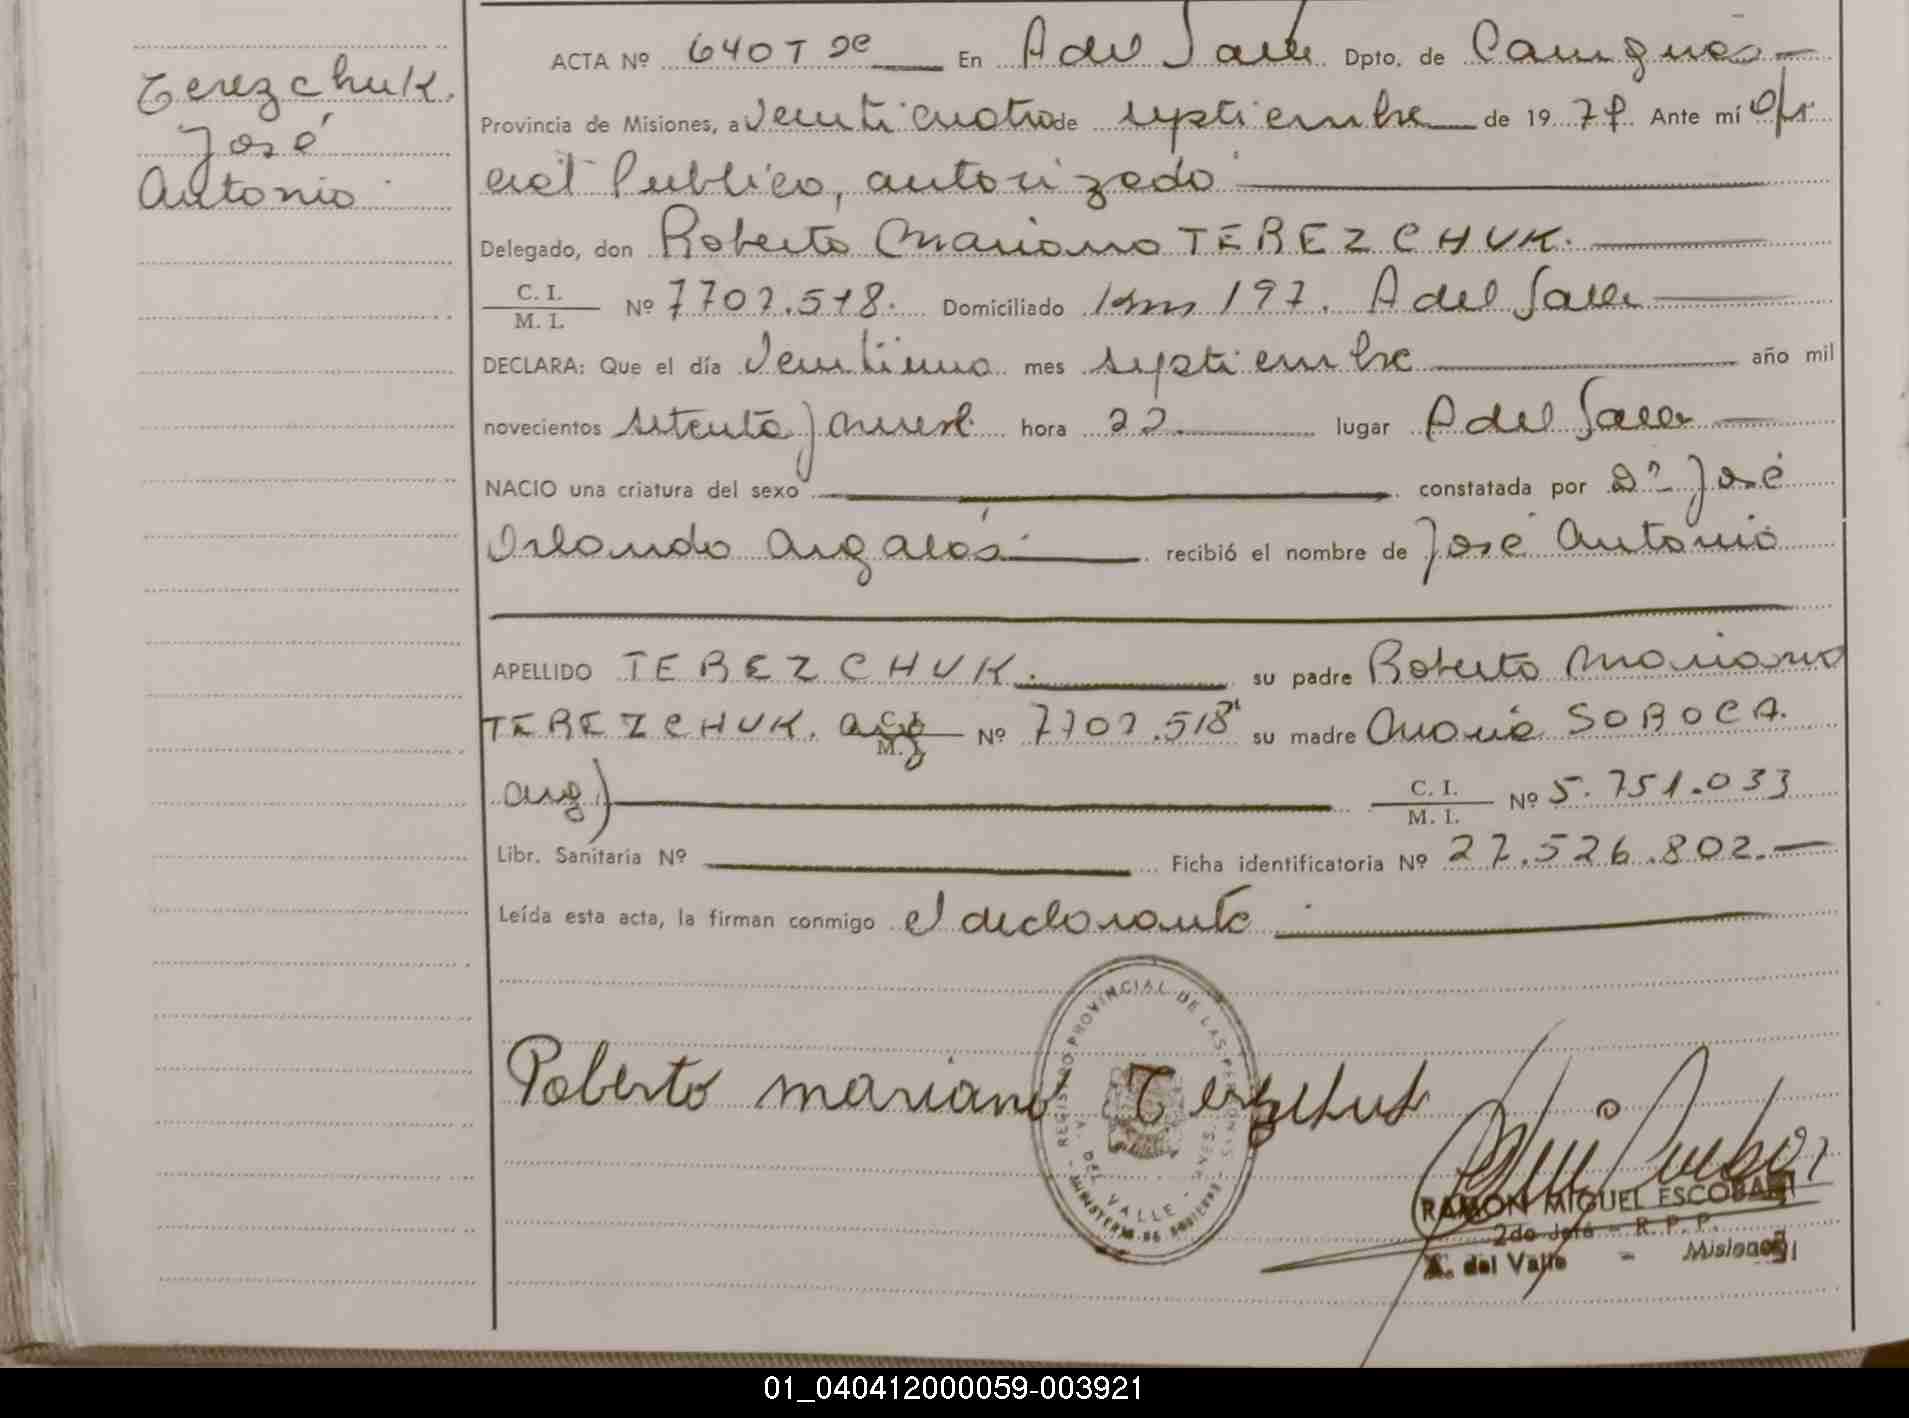 Terezchuk.
José
Antonio
ACTA Nº 640 T 2º En A del Valle Dpto. de Cainguas
Provincia de Misiones, a veinticuatro de septiembre de 1979. Ante mí Ofi
cial Publico, autorizado
Delegado, don Roberto Mariano TEREZCHUK.
C. I.
M. I. Nº 7707.518. Domiciliado Km 197. A del Valle
DECLARA: Que el día Veintiuno mes septiembre año mil
novecientos setenta y nueve hora 22 lugar A del Valle
NACIO una criatura del sexo constatada por Dr José
Orlando recibió el nombre de José Antonio
APELLIDO TEREZCHUK. su padre Roberto Mariano
TEREZCHUK. arg C. I. M. I. Nº 7707.518 su madre Maria SOROCA.
arg) C. I. M. I. Nº 5.751.033
Libr. Sanitaria Nº Ficha identificatoria Nº 27.526.802.
Leída esta acta, la firman conmigo el declarante
REGISTRO PROVINCIAL DE LAS PERSONAS
A. DEL VALLE - MNES.
MINISTERIO DE GOBIERNO
Roberto mariano
RAMON MIGUEL ESCOBAR
2do Jefe - R. P. P.
A. del Valle - Misiones
01_040412000059-003921